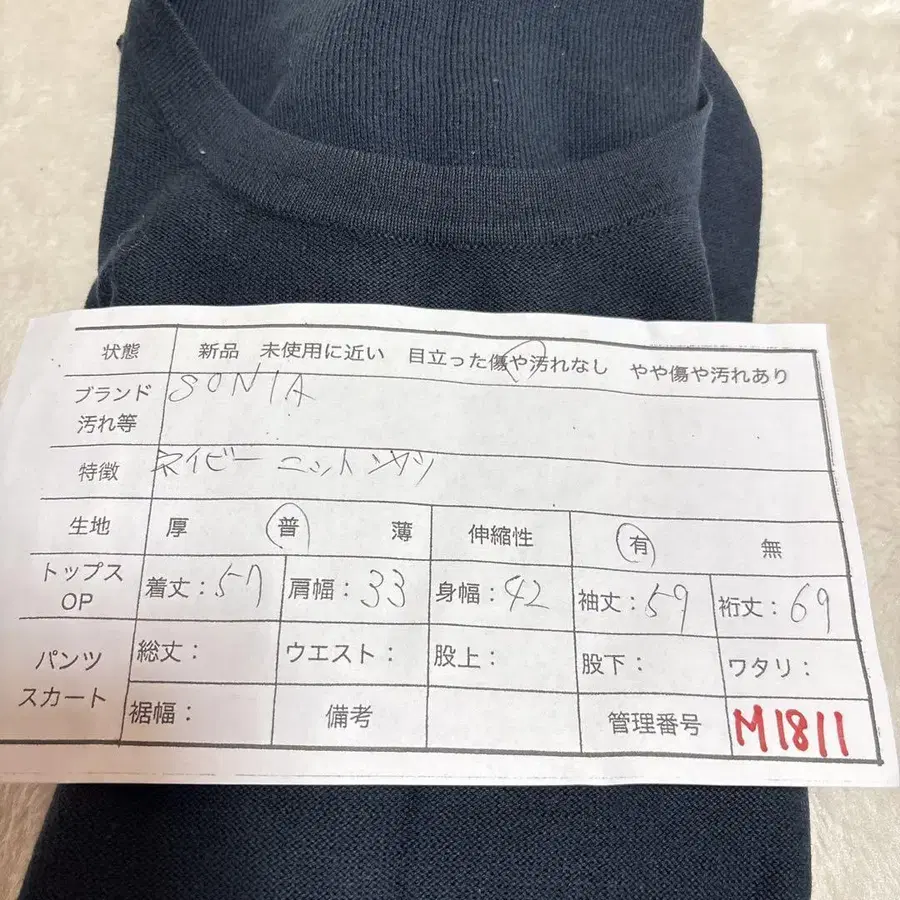 状態 新品 未使用に近い 目立った傷や汚れなし やや傷や汚れあり
ブランド SONIA
汚れ等
特徴 ネイビー ニット
生地 厚 普 薄 伸縮性 有 無
トップス OP 着丈:57 肩幅:33 身幅:42 袖丈:59 裄丈:69
パンツ スカート 総丈: ウエスト: 股上: 股下: ワタリ:
裾幅: 備考 管理番号 M1811